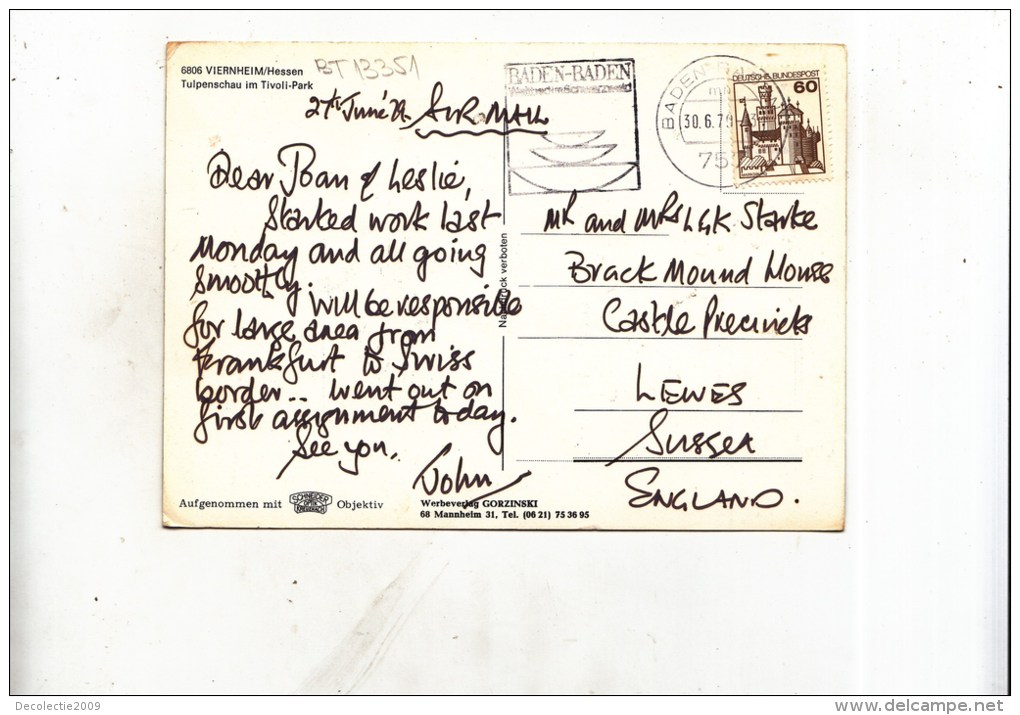 6806 VIERNHEIM/Hessen
Tulpenschau im Tivoli-Park
BT 13351
June AIR MAIL
Dear Joan & Leslie,
Started work last
Monday and all going
smoothly. Will be responsible
for large area from
Frankfurt to Swiss
border.. Went out on
first assignment today.
See you,
John
Aufgenommen mit
SCHNEIDER
KREUZNACH
Objektiv
Werbeverlag GORZINSKI
68 Mannheim 31, Tel. (06 21) 75 36 95
Nachdruck verboten
BADEN-BADEN
Weltbad im Schwarzwald
BADEN-
30.6.79
757
DEUTSCHE BUNDESPOST
60
MR and MRS L & K Starke
Brack Mound House
Castle Precincts
LEWES
Sussex
ENGLAND.
Decolectie2009
www.delcampe.net